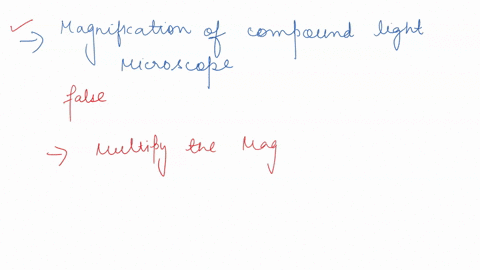 → Magnification of compound light
Microscope
false
→ Multify the Mag